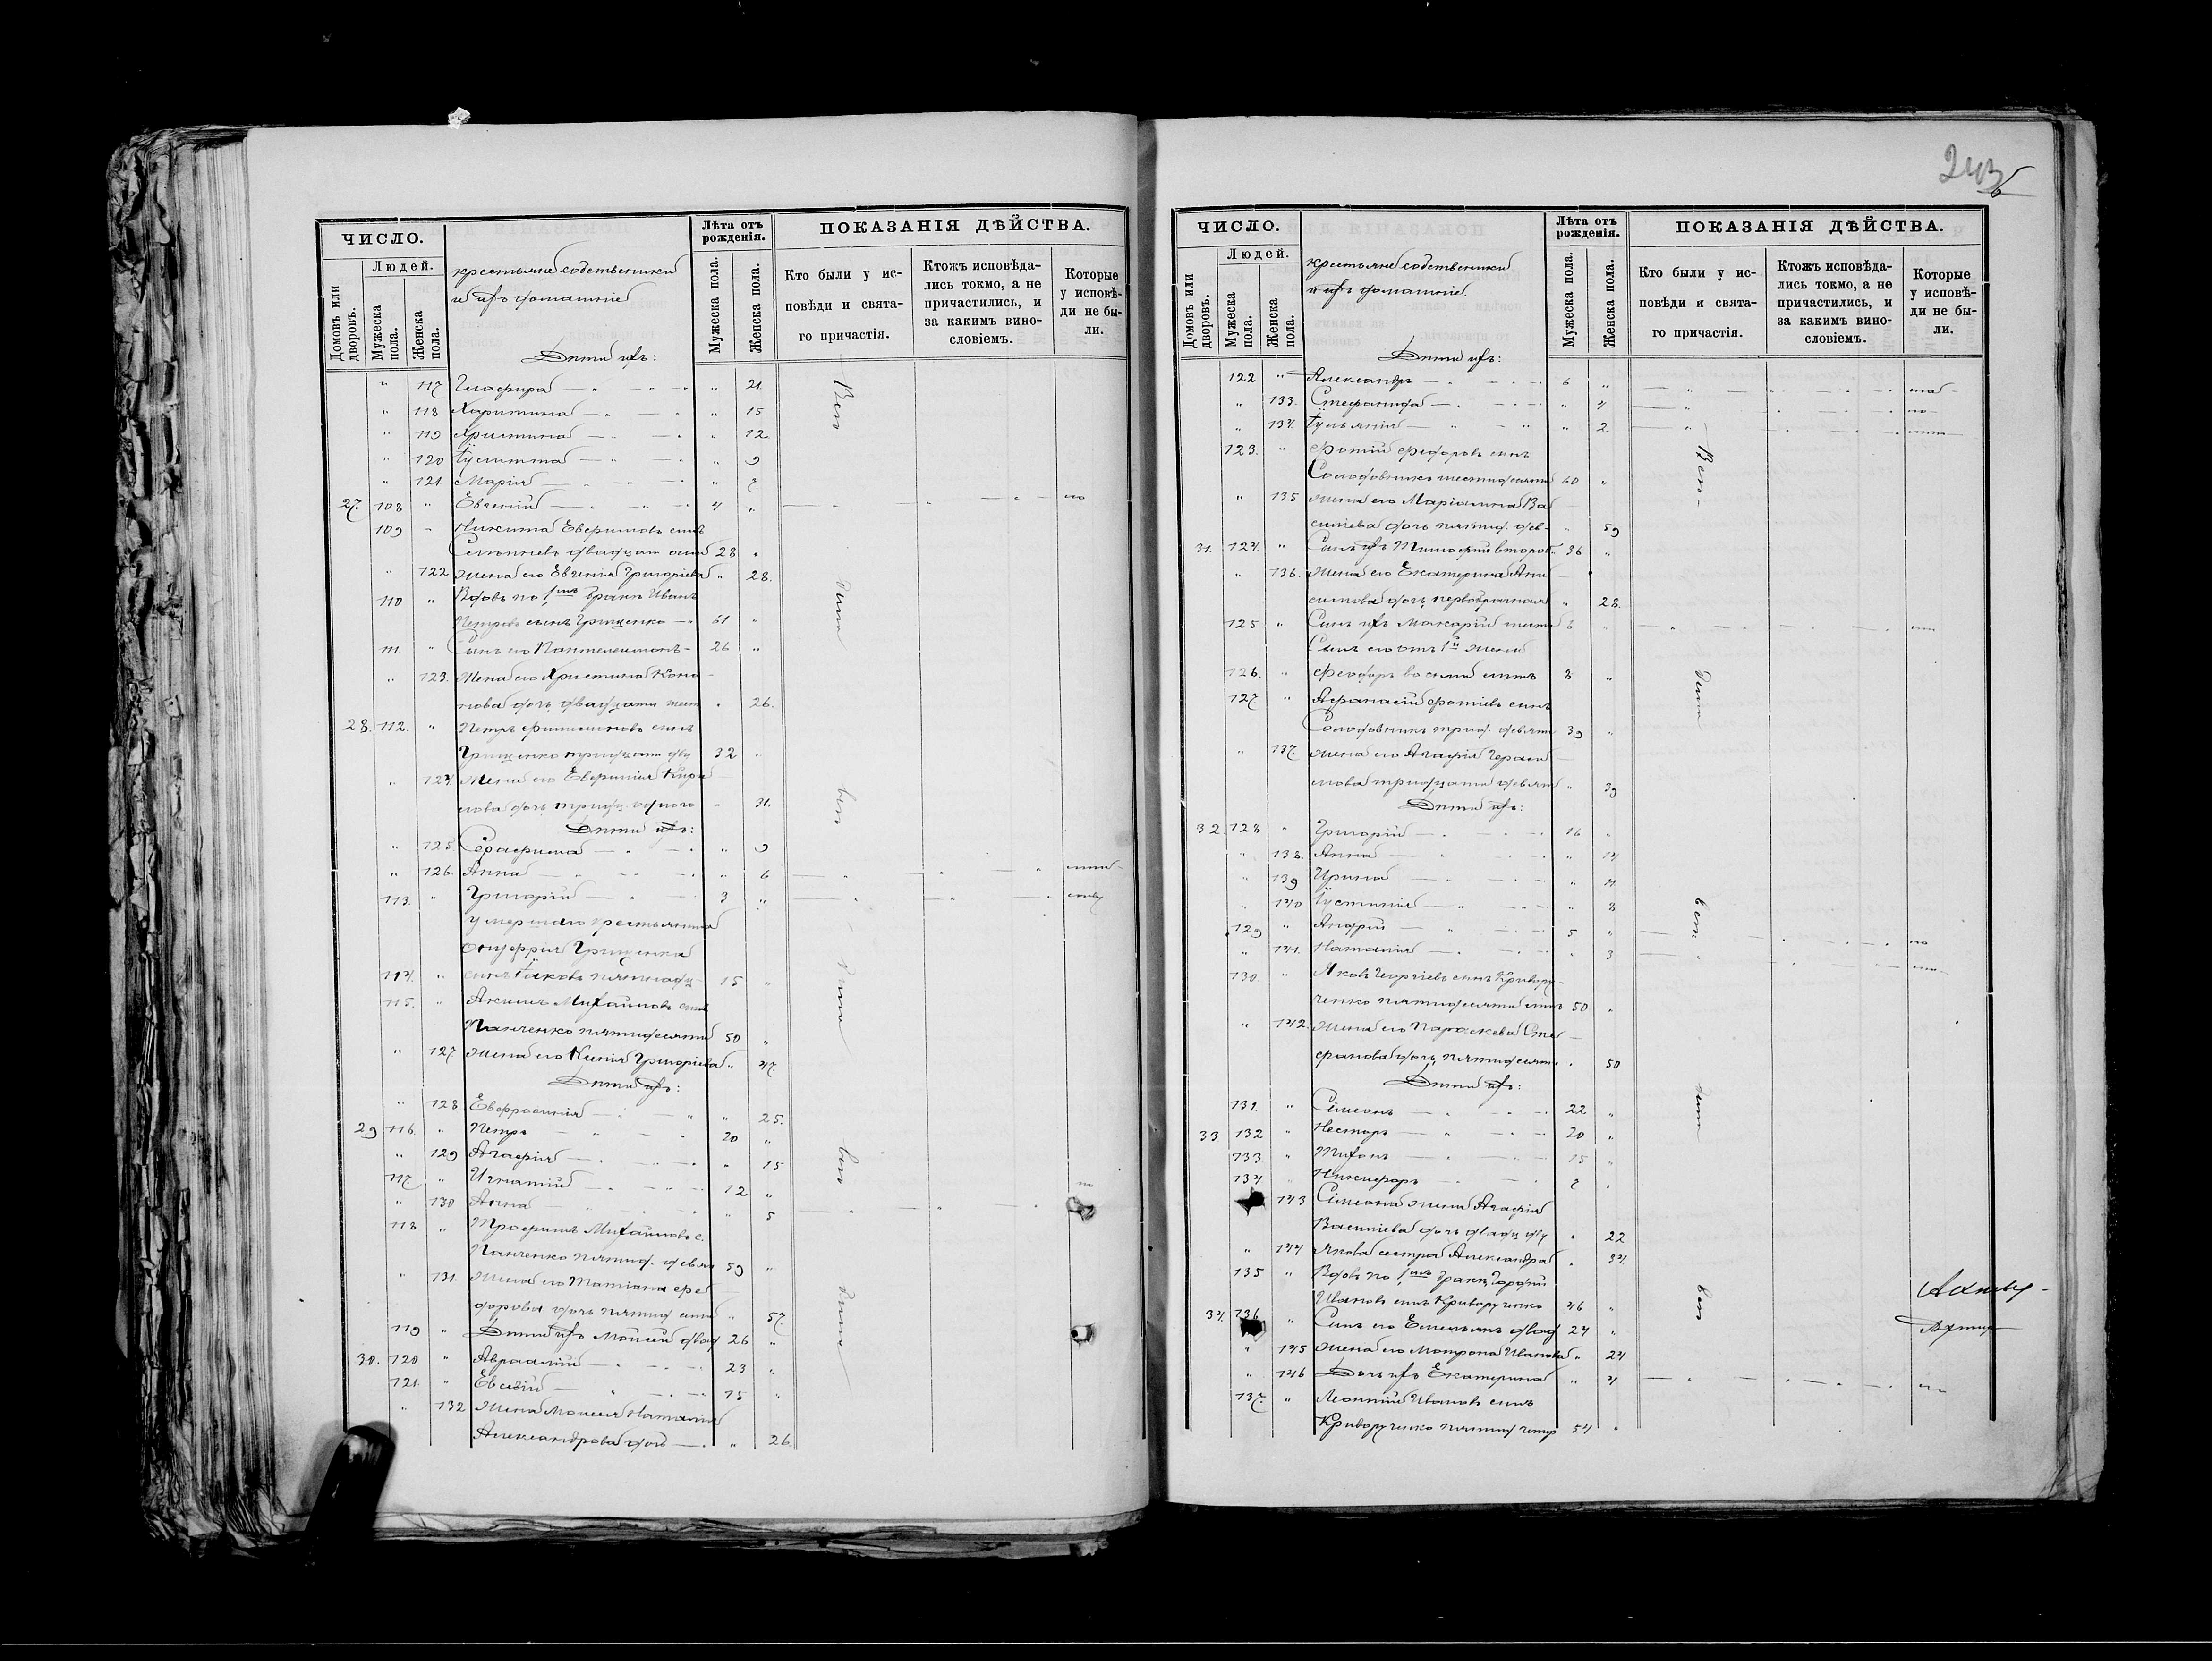 243
ЧИСЛО.
Людей.
Домовъ или дворовъ.
Мужеска пола.
Женска пола.
крестьяне собственики
и ихъ домашніе
Лѣта отъ рожденія.
Мужеска пола.
Женска пола.
ПОКАЗАНІЯ ДѢЙСТВА.
Кто были у исповѣди и святаго причастія.
Ктожъ исповѣдались токмо, а не причастились, и за какимъ винословіемъ.
Которые у исповѣди не были.
Дѣти ихъ:
" 117 Глафира — " 21.
" 118 Харитина — " 15
" 119 Христина — " 12.
" 120 Іустина — " 9
" 121. Марія — "
27. 108 " Евгений — 4 "
109 " Никита Евфимовъ сынъ
28 "
" 122 жена его Евгенія Григоріева " 28.
110 " Вдовъ по 1мъ бракѣ Иванъ
Петровъ сынъ Грищенко — 51 "
111. " Сынъ его Пантелеимонъ — 26 "
" 123. Жена его Христина Коно-
нова дочь двадцати шест " 26.
28. 112. " Петръ Филимоновъ сынъ
Грищенко тридцати дву 32 "
" 124. Жена его Евфимія Кири-
лова дочь тридц. одного " 31.
Дѣти ихъ:
" 125 Серафима — " 9
" 126. Анна — " 6
113. " Григорій — 3 "
умершаго крестьянина
Онуфрія Грищенка
114. " сынъ Іаковъ пятнадц— 15 "
115. " Акимъ Михайловъ сынъ
Панченко пятидесяти 50 "
" 127 жена его Ксенія Григоріева " 47.
Дѣти ихъ:
" 128 Евфросинія — " 25.
29 116. " Петръ — 20 "
" 129 Агафія — " 15
117. " Игнатій — 12 "
" 130 Анна — " 5
118 " Трофимъ Михайловъ с.
Панченко пятид. девят 59 "
" 131. Жена его Татіана Фео-
дорова дочь пятид семи " 57.
119 " Дѣти ихъ Моисей двад 26 "
30. 120 " Авраамій — 23 "
121. " Евсевій — 15 "
" 132 Жена Моисея Наталія
Александрова дочь — " 26.
ЧИСЛО.
Людей.
Домовъ или дворовъ.
Мужеска пола.
Женска пола.
крестьяне собственики
и ихъ домашніе.
Лѣта отъ рожденія.
Мужеска пола.
Женска пола.
ПОКАЗАНІЯ ДѢЙСТВА.
Кто были у исповѣди и святаго причастія.
Ктожъ исповѣдались токмо, а не причастились, и за какимъ винословіемъ.
Которые у исповѣди не были.
Дѣти ихъ:
122 " Александръ — 6 "
" 133. Стефанида — " 4
" 134. Іуліанія — " 2
123. " Фотій Феодоровъ сынъ
Солодовникъ шестидесяти 60 "
" 135 жена его Маріамна Ва-
силіева дочь пятид. дев- " 59
31. 124. " Сынъ ихъ Тимофей второб. 36 "
" 136. Жена его Екатерина Они-
симова дочь первобрачная " 28.
125 " Сынъ ихъ Макарій 6 "
Сынъ его отъ 1й жены
126. " Феодоръ восьми лѣтъ 8 "
127. " Афанасій Фотіевъ сынъ
Солодовникъ трид. девяти 39 "
" 137. жена его Агафія Гераси-
мова тридцати девяти " 39
Дѣти ихъ:
32. 128 " Григорій — 16 "
" 138. Анна — " 14
" 139 Ирина — " 11
" 140 Іустинія — " 8
129 " Андрей — 5 "
" 141. Наталія — " 3
130. " Яковъ Георгіевъ сынъ Кривору-
ченко пятидесяти лѣтъ 50 "
" 142. жена его Параскева Сте-
фанова дочь пятидесяти " 50
Дѣти ихъ:
131. " Симеонъ — 22 "
33 132 " Несторъ — 20 "
133 " Тихонъ — 15 "
134 " Никифоръ —
143 Симеона жена Агафія
Василіева дочь двадц дву " 22
" 144 Якова сестра Александра " 34.
135 " Вдовъ по 1мъ бракѣ Гордѣй
Ивановъ сынъ Криворученко 46 "
34. 136. " Сынъ его Емельянъ двад 24 "
" 145 жена его Матрона Иванова " 24
" 146 Дочь ихъ Екатерина " 4
137. " Леонтій Ивановъ сынъ
Криворученко пятид четыр 54 "